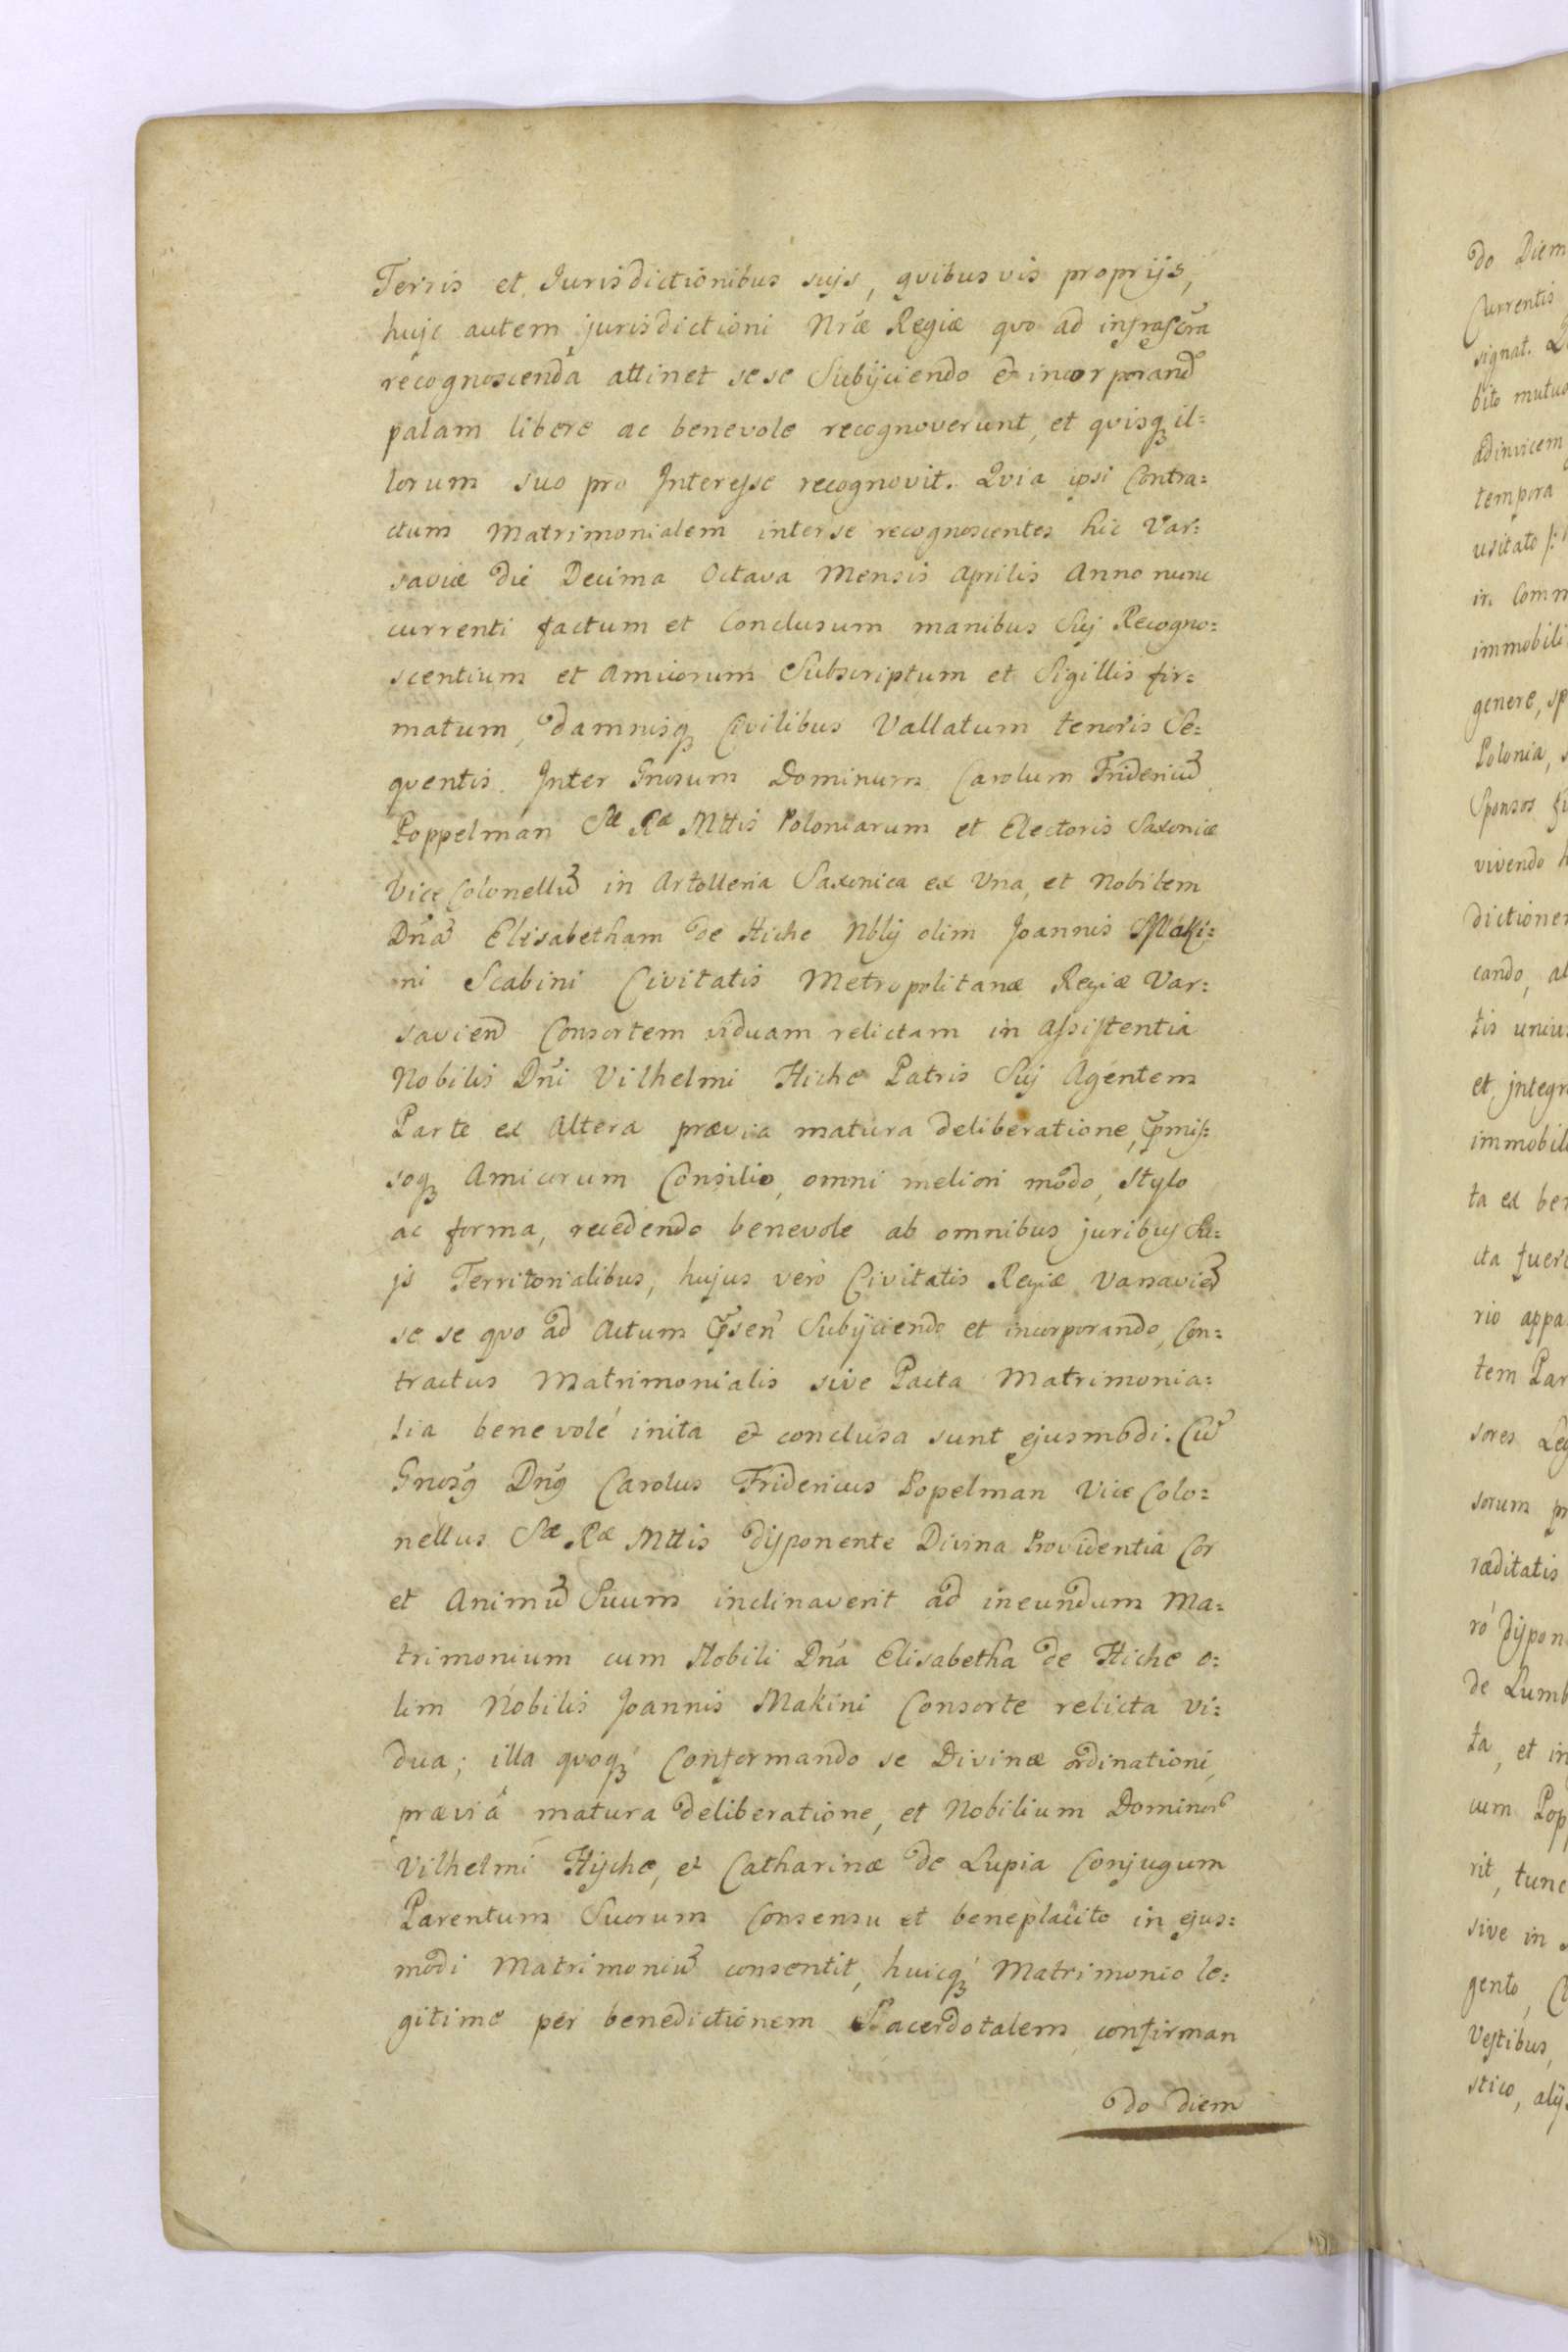 Terris et Jurisdictionibus sujs, qvibus vis proprijs,
hujc autem jurisdictioni Nrae Regiae qvo ad infrascra
recognoscenda attinet sese Subijciendo et incorporand
palam libere ac benevole recognoverunt, et qvisq il=
lorum suo pro Interesse recognovit. Qvia ipsi Contra=
ctum Matrimonialem inter se recognoscentes hic Var=
saviae die Decima Octava Mensis Aprilis Anno nunc
currenti factum et Conclusum manibus Suj Recogno=
scentium et Amicorum Subscriptum et Sigillis fir=
matum, damnisq Civilibus Vallatum tenoris Se=
qventis. Inter Gnosum Dominum Carolum Fridericu
Poppelman Sae Rae Mttis Poloniarum et Electoris Saxoniae
Vice Colonellu in Artolleria Saxonica ex Una, et Nobilem
Dna Elisabetham de Hiche Nblij olim Joannis Maki=
ni Scabini Civitatis Metropolitanae Regiae Var=
savien Consortem viduam relictam in Assistentia
Nobilis Dni Vilhelmi Hiche Patris Suj Agentem
Parte ex Altera praevia matura deliberatione, pmis=
soq Amicorum Consilio, omni meliori modo, Stylo
ac forma, recedendo benevole ab omnibus juribus Su=
js Territorialibus, hujus vero Civitatis Regiae Varsavien
se se qvo ad Actum psen Subijciendo et incorporando, Con=
tractus Matrimonialis sive Pacta Matrimonia=
lia benevolé inita et conclusa sunt ejusmodi. Cu
Gnosq Dnq Carolus Fridericus Popelman Vice Colo=
nellus Sae Rae Mttis disponente Divina Providentia Cor
et Animu Suum inclinaverit ad ineundum Ma=
trimonium cum Nobili Dna Elisabetha de Hiche o=
lim Nobilis Joannis Makini Consorte relicta vi=
dua; illa qvoq Conformando se Divinae ordinationi,
praeviâ matura deliberatione, et Nobilium Dominor
Vilhelmi Hijche, et Catharinae de Lupia Conjugum
Parentum Suorum Consensu et beneplacito in ejus=
modi Matrimoniu consentit, huicq Matrimonio le=
gitime per benedictionem Sacerdotalem confirman
do diem
do Diem
Currentis
signat.
bito mutuo
adinvicem
tempora
usitato
in Comm
immobili
genere, sp
Polonia,
Sponsos
vivendo
dictionem
cando,
tis unius
et integr
immobil
ta ex ben
cta fuer
rio appa
tem Par
sores Leg
sorum
raeditatis
ró dispon
de Lumb
ta, et in
cum Pop
rit, tunc
sive in
gento,
Vestibus,
stico, alijs